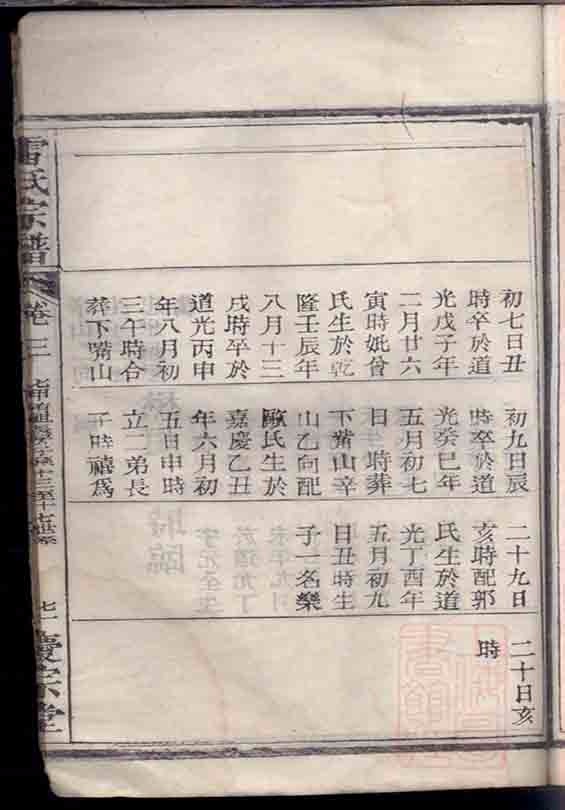 初七日丑
時卒於道
光戊子年
二月廿六
寅時妣曾
氏生於乾
隆壬辰年
八月十三
戌時卒於
道光丙申
年八月初
三午時合
葬下嘴山
初九日辰
時卒於道
光癸巳年
五月初七
日 時葬
下嘴山辛
山乙向配
歐氏生於
嘉慶乙丑
年六月初
五日申時
立二弟長
子時禧為
二十九日
亥時配郭
氏生於道
光丁酉年
五月初九
日丑時生
子一名樂
二十日亥
時
雷氏宗譜
卷三
慶宗堂